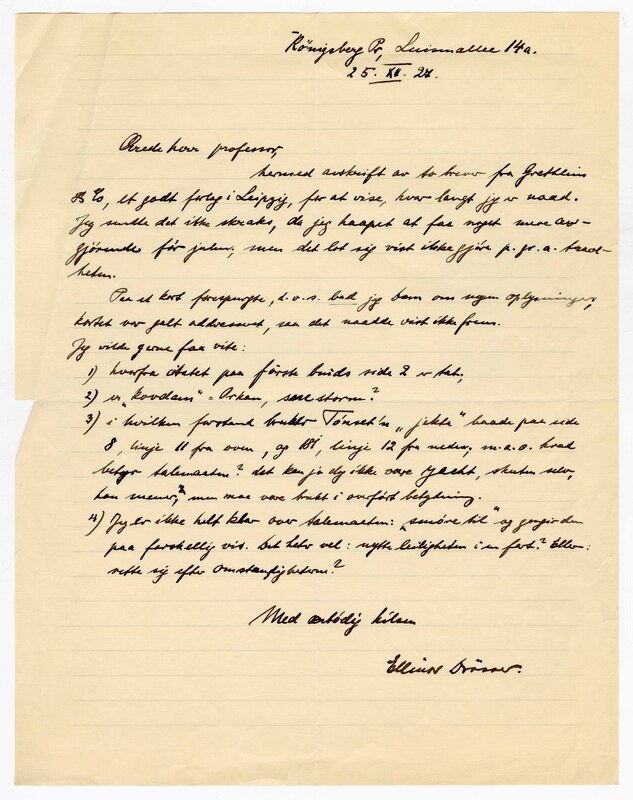 Königsberg Pr, Luisenallee 14a.
25. XI. 27.
Ærede herr professor,
hermed avskrift av to brever fra Grethlein
& Co, et godt forlag i Leipzig, for at vise, hvor langt jeg er naad.
Jeg sendte det ikke straks, da jeg haapet at faa noget mere av-
gjörende för julen, men det lot sig vist ikke gjöre p. gr. a. travl-
heten.
Paa et kort forespurgte, d.v.s. bad jeg dem om nogen oplysninger,
kortet var galt addresseret, saa det naadde vist ikke frem.
Jeg vilde gerne faa vite:
1) hvorfra citatet paa förste binds side 2 er tat,
2) er „kovdam" - Orkan, storm?
3) i hvilken forstand bruker Tönset'n „jekta" baade paa side
8, linje 11 fra oven, og 181, linje 12 fra neden, m.a.o. hvad
betyr talemaaten? det kan jo dog ikke være Yacht, skuten selv,
han mener, men maa være brukt i overfört betydning.
4) Jeg er ikke helt klar over talemaaten: „smöre til" og gengir den
paa forskellig vis. Det heter vel: nytte leiligheten i en fart? Eller:
rette sig efter omstændigheterne?
Med ærbödig hilsen
Ellinor Drösser.